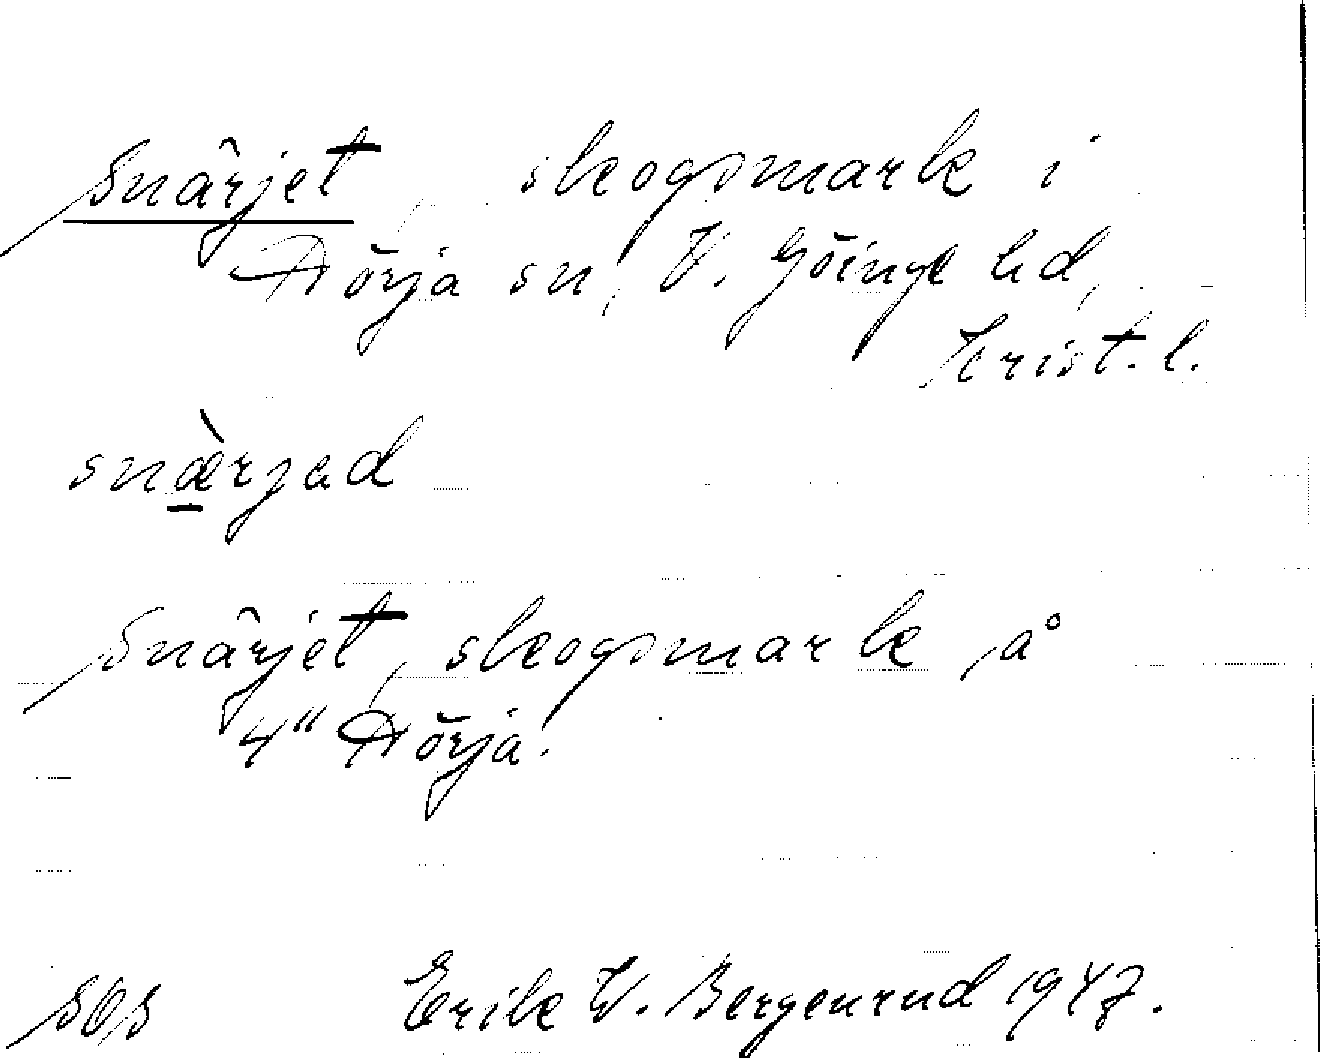 Snärjet, skogsmark i
Nörja sn, V. Göinge hd,
Krist. l.
snæ̠̀rjad
Snärjet, skogsmark på
4" Nörja.
SOS Erik W. Bergenrud 1947.